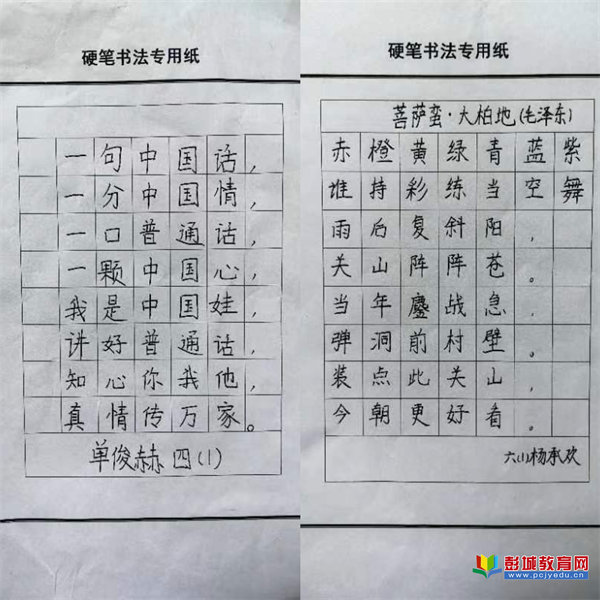 硬笔书法专用纸
一句中国话，
一分中国情，
一口普通话，
一颗中国心，
我是中国娃，
讲好普通话，
知心你我他，
真情传万家。
单俊赫 四(1)
硬笔书法专用纸
菩萨蛮·大柏地(毛泽东)
赤橙黄绿青蓝紫
谁持彩练当空舞
雨后复斜阳，
关山阵阵苍。
当年鏖战急，
弹洞前村壁。
装点此关山，
今朝更好看。
六(1)杨承欢
彭城教育网
www.pcjyedu.cn